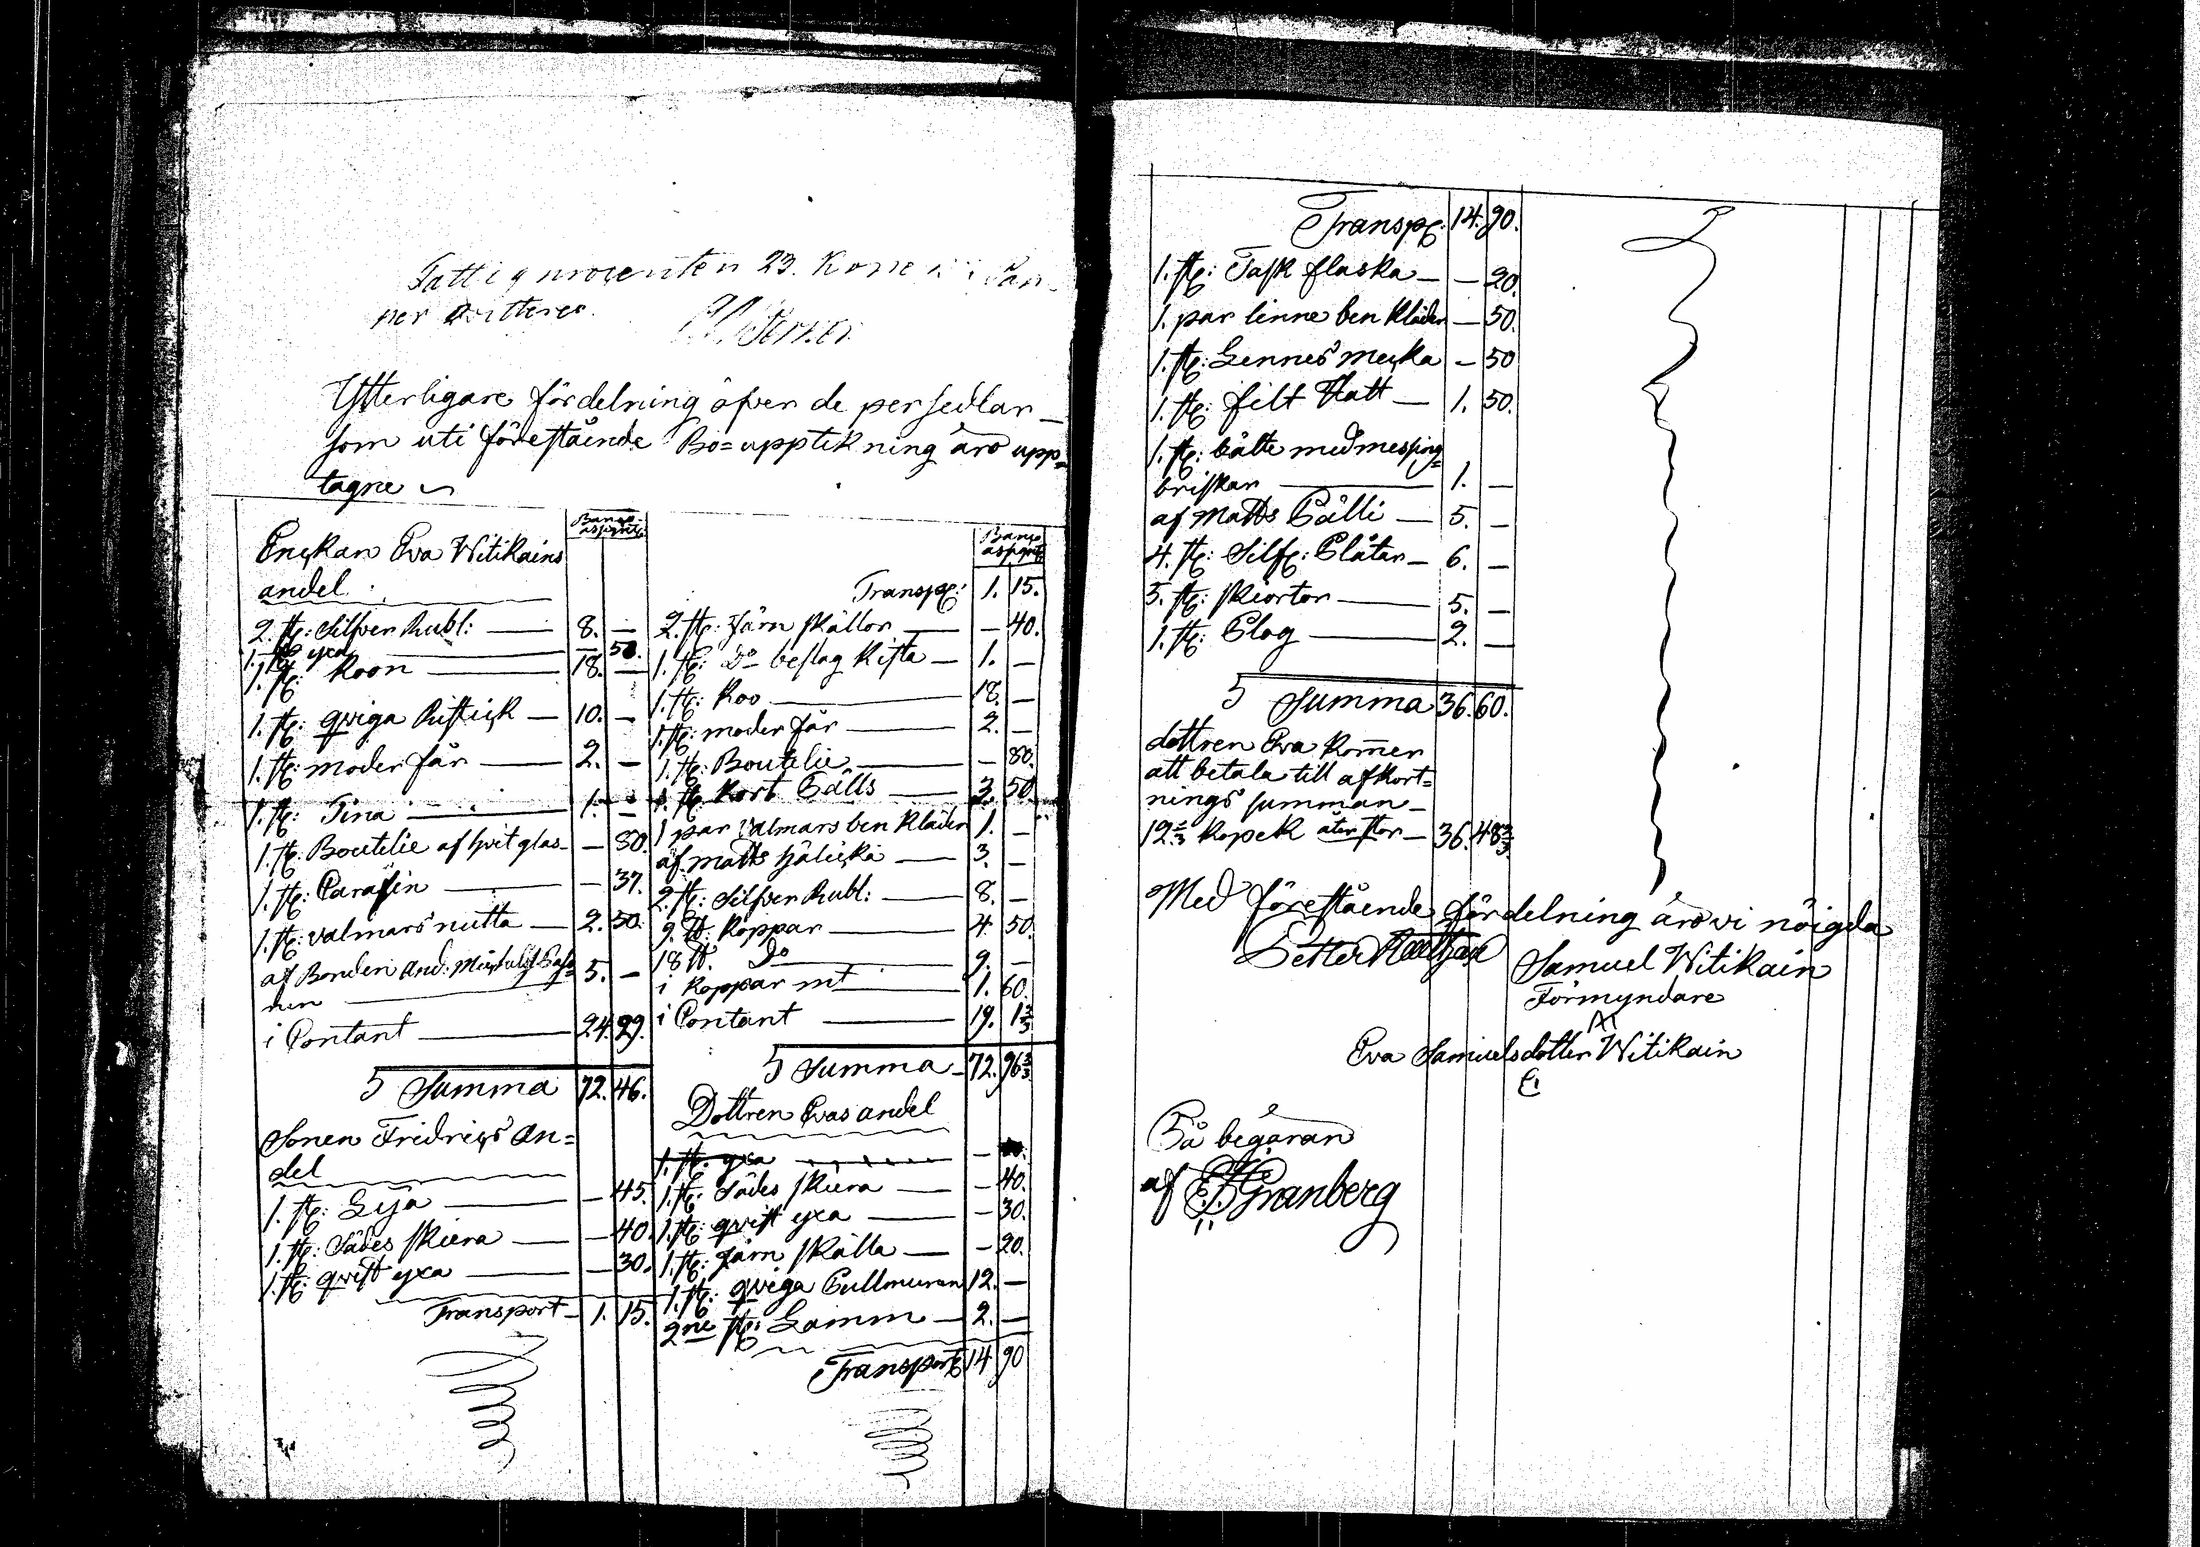 Fattig procenten 23. Kope
per qvitteres.
Ytterligare fördelning öfver de persedlar
som uti föreståënde Bo=upptekning äro upp=
tagne
Banco
assignt:
Enckan Eva Witikains
andel
2. st: Silfver Rubl: — 8. —
1. st: yxa — — 50.
1. st: Koon — 18. —
1. st: qviga Ristick — 10. —
1. st: moder får — 2. —
1. st: Tina — 1. —
1. st: Boutelie af hvit glas — — 80.
1. st: Carafin — — 37.
1. st: valmars nutta — 2. 50.
af Bonden And:
nen — 5. —
i Contant — 24. 29.
S Summa 72. 46.
Sonen Fridrics An=
del
1. st: Lÿa — — 45.
1. st: Sädes skiera — — 40.
1. st: qvist yxa — — 30.
Transport — 1. 15.
Banco
assignt:
Transp: 1. 15.
2. st: Järn skållor — — 40.
1. st: Do beslag Kista — 1. —
1. st: Koo — 18. —
1. st: moder får — 2. —
1. st: Boutelie — — 80.
1. st: Kort Gälls — 3. 50.
1 par Valmars ben Kläder 1. —
af Matts Hälickä — 3. —
2. st: Silfver Rubl: — 8. —
9. ℔: Koppar — 4. 50.
18 ℔. Do — 9. —
i Koppar mt — 1. 60.
i Contant — 19. 1 2/3
S Summa — 72. 96 2/3
Dottren Evas andel
1. st: yxa —
1. st: Sädes skiera — — 40.
1. st: qvist yxa — — 30.
1. st: Järn skålla — — 20.
1. st: qviga Gullmuran 12. —
2ne st: Lamm — 2. —
Transport 14 90
Transp: 14. 90.
1. st: Task flaska — — 20.
1. par linne ben Kläder — 50.
1. st: Lennes mecka — 50
1. st: filt Hatt — 1. 50.
1. st: bälte med messing=
briskar — 1. —
af Matts Pälli — 5. —
4. st: Silf: Plåtar — 6. —
5. st: skiortor — 5. —
1. st: Plog — 2. —
S Summa 36. 60.
dottren Eva Kom̄er
att betala till afkort=
nings summan —
12 2/3 Kopek återstor — 36. 48 2/3
Med föreståënde fördelning äro vi nöigda
Petter
Samuel Witikain
Förmyndare
Eva Samuelsdotter Witikain
På begäran
af Granberg